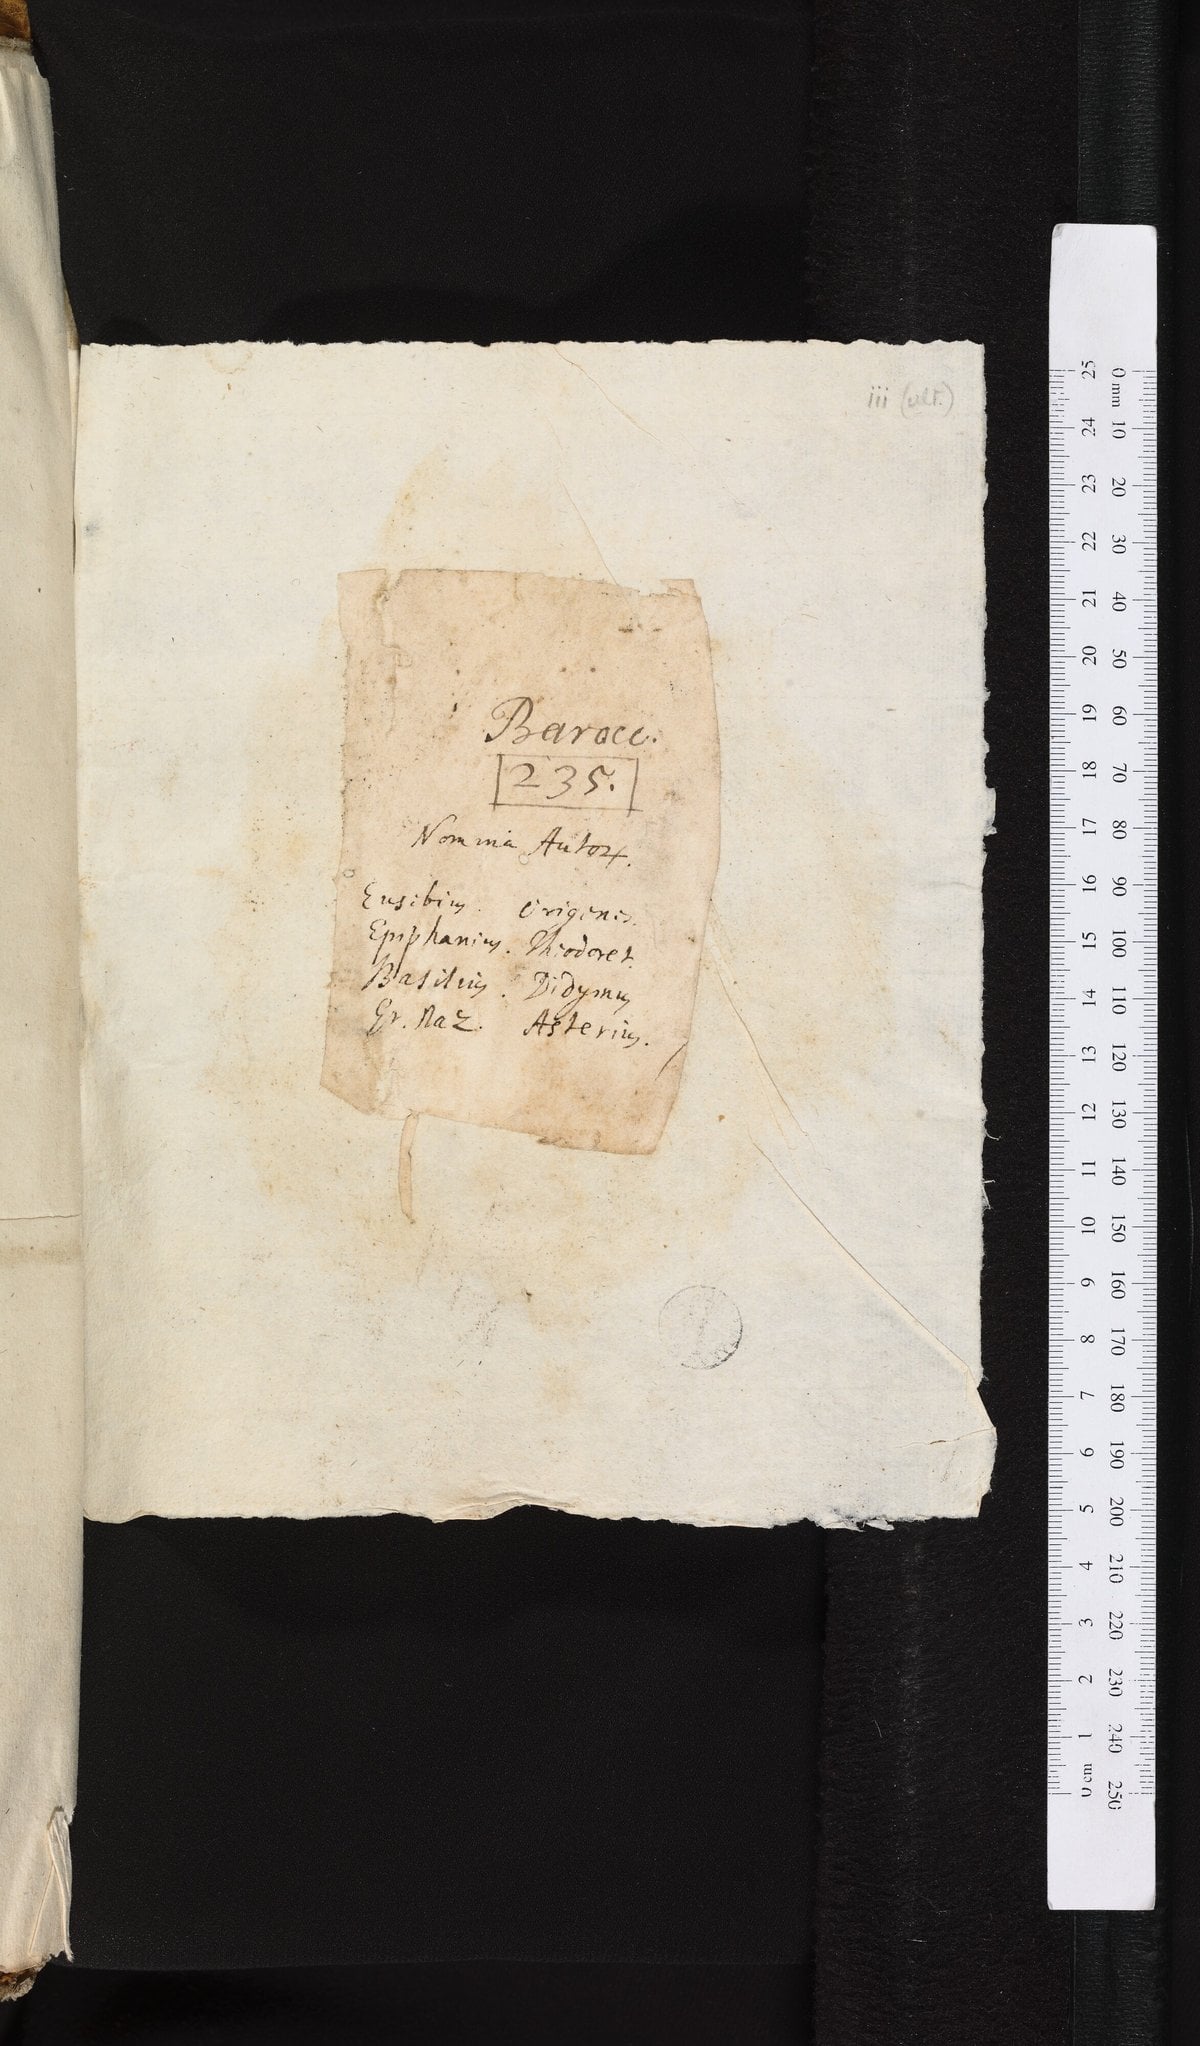 iii (ult.)
Barocc.
235.
Nomina Autoꝝ.
Eusebius. Origenes.
Epiphanius. Theodoret.
Basilius. Didymus
Gr. Naz. Asterius.
0 mm 10 20 30 40 50 60 70 80 90 100 110 120 130 140 150 160 170 180 190 200 210 220 230 240 250
25 24 23 22 21 20 19 18 17 16 15 14 13 12 11 10 9 8 7 6 5 4 3 2 1 0 cm